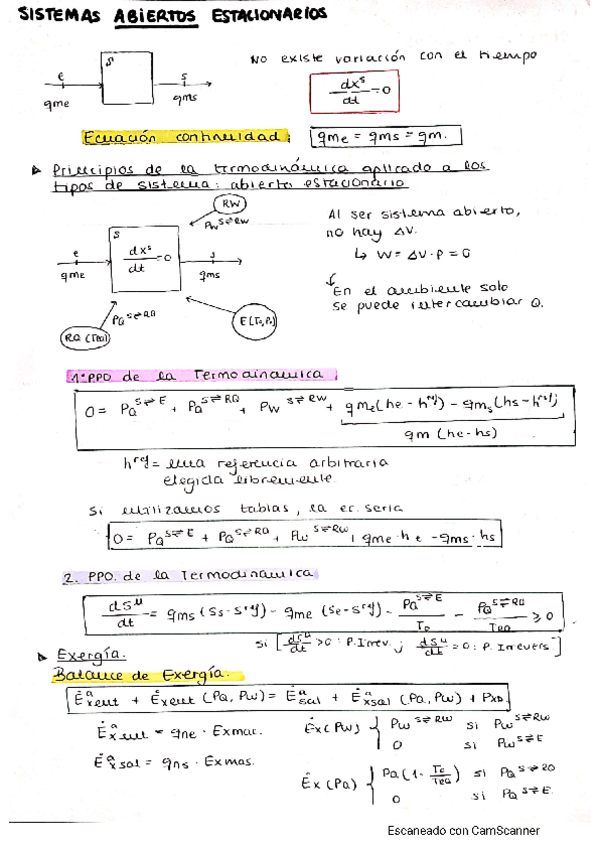 SISTEMAS ABIERTOS ESTACIONARIOS
No existe variación con el tiempo
e S s
qme qms
dxˢ/dt = 0
Ecuación continuidad: qme = qms = qm.
Principios de la termodinámica aplicado a los
tipos de sistema: abierto estacionario
RW
Pw^S⇌RW
S
e dxˢ/dt = 0 s
qme qms
PQ^S⇌RQ
RQ (TRQ)
E(To,Po)
Al ser sistema abierto,
no hay ΔV.
↳ W = ΔV · P = 0
En el ambiente solo
se puede intercambiar Q.
1º PPO de la Termodinámica
0 = PQ^S⇌E + PQ^S⇌RQ + PW^S⇌RW + qme(he - h^ref) - qms(hs - h^ref)
qm (he - hs)
h^ref = una referencia arbitraria
elegida libremente.
Si utilizamos tablas, la ec. sería
0 = PQ^S⇌E + PQ^S⇌RQ + PW^S⇌RW + qme · he - qms · hs
2. PPO. de la Termodinámica
dSᵘ/dt = qms (Ss - S^ref) - qme (Se - S^ref) - PQ^S⇌E/To - PQ^S⇌RQ/TRQ ⩾ 0
Si [dSᵘ/dt > 0 : P. Irrev. ; dSᵘ/dt = 0 : P. Irrevers]
Exergía.
Balance de Exergía.
Ėᵃxent + Ėxent (PQ, PW) = Ėᵃsal + Ėᵃxsal (PQ, PW) + PxD
Ėᵃxent = qme · Exmae.
Ėᵃxsal = qms · Exmas.
Ėx(PW) { PW^S⇌RW si PW^S⇌RW
0 si PW^S⇌E
Ėx(PQ) { PQ(1 - To/TRQ) si PQ^S⇌RQ
0 si PQ^S⇌E
Escaneado con CamScanner